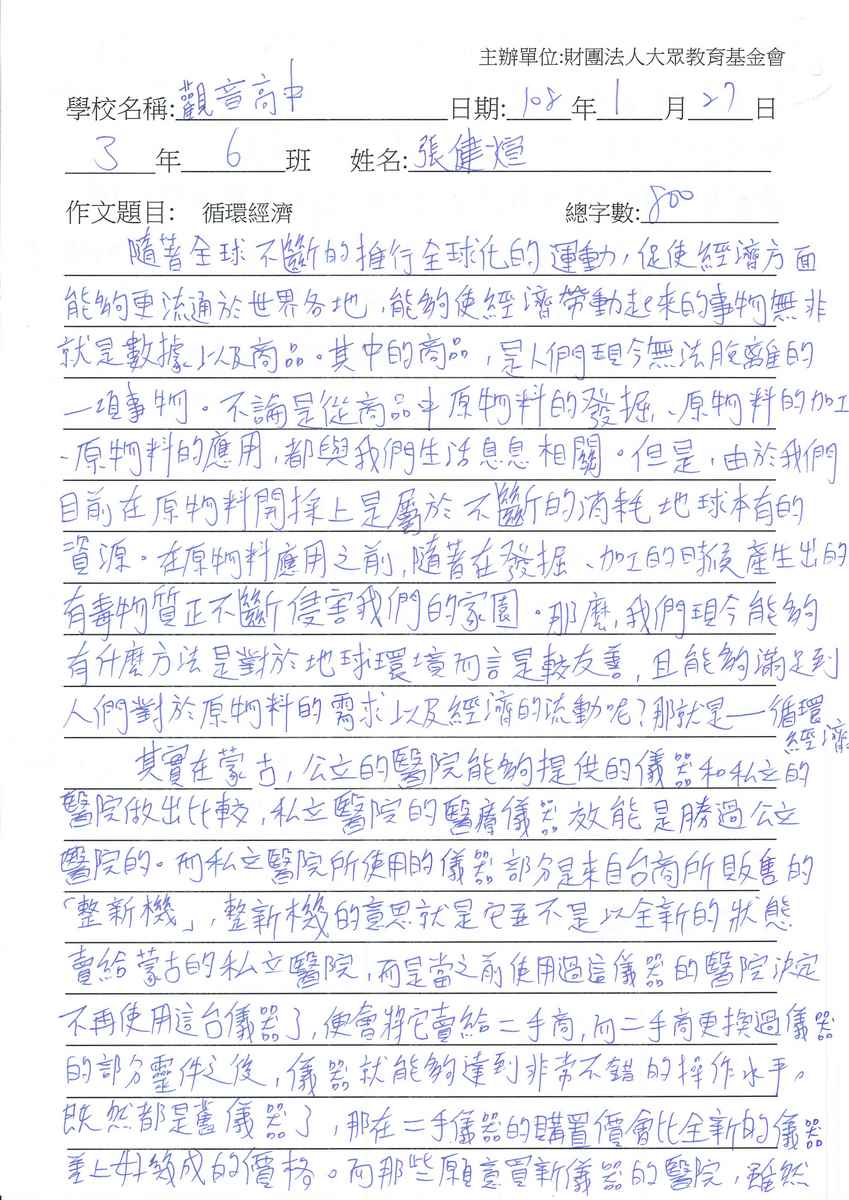 主辦單位:財團法人大眾教育基金會
學校名稱:觀音高中 日期:108年1月27日
3年6班 姓名:張健煊
作文題目: 循環經濟 總字數:800
隨著全球不斷的推行全球化的運動,促使經濟方面
能夠更流通於世界各地,能夠使經濟帶動起來的事物無非
就是數據以及商品。其中的商品,是人們現今無法脫離的
一項事物。不論是從商品中原物料的發掘、原物料的加工
、原物料的應用,都與我們生活息息相關。但是,由於我們
目前在原物料開採上是屬於不斷的消耗地球本有的
資源。在原物料應用之前,隨著在發掘、加工的時候產生出的
有毒物質正不斷侵害我們的家園。那麼,我們現今能夠
有什麼方法是對於地球環境而言是較友善,且能夠滿足到
人們對於原物料的需求以及經濟的流動呢?那就是──循環
經濟
其實在蒙古,公立的醫院能夠提供的儀器和私立的
醫院做出比較,私立醫院的醫療儀器效能是勝過公立
醫院的。而私立醫院所使用的儀器部分是來自台商所販售的
「整新機」,整新機的意思就是它並不是以全新的狀態
賣給蒙古的私立醫院,而是當之前使用過這儀器的醫院決定
不再使用這台儀器了,便會將它賣給二手商,而二手商更換過儀器
的部分零件之後,儀器就能夠達到非常不錯的操作水平。
既然都是舊儀器了,那在二手儀器的購置價會比全新的儀器
差上好幾成的價格。而那些願意買新儀器的醫院,雖然